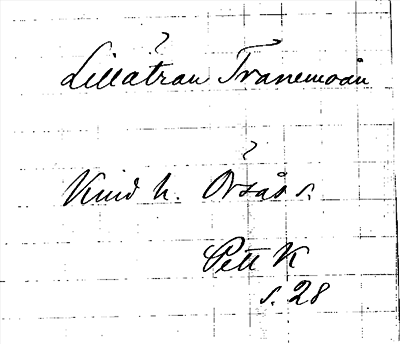 ?
Lillåtran Tranemoån
?
Kind h. Örsås s.
Pett K
s. 28